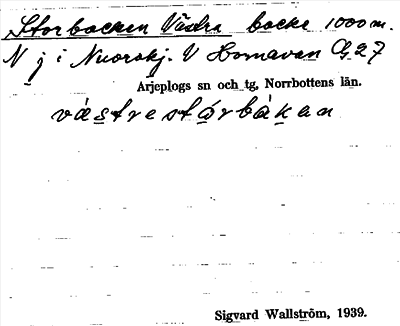 Storbacken Västra backe 1000 m.
N j i Nuorokj. V Hornavan G, 27
Arjeplogs sn och tg, Norrbottens län.
västrestórbàken
Sigvard Wallström, 1939.